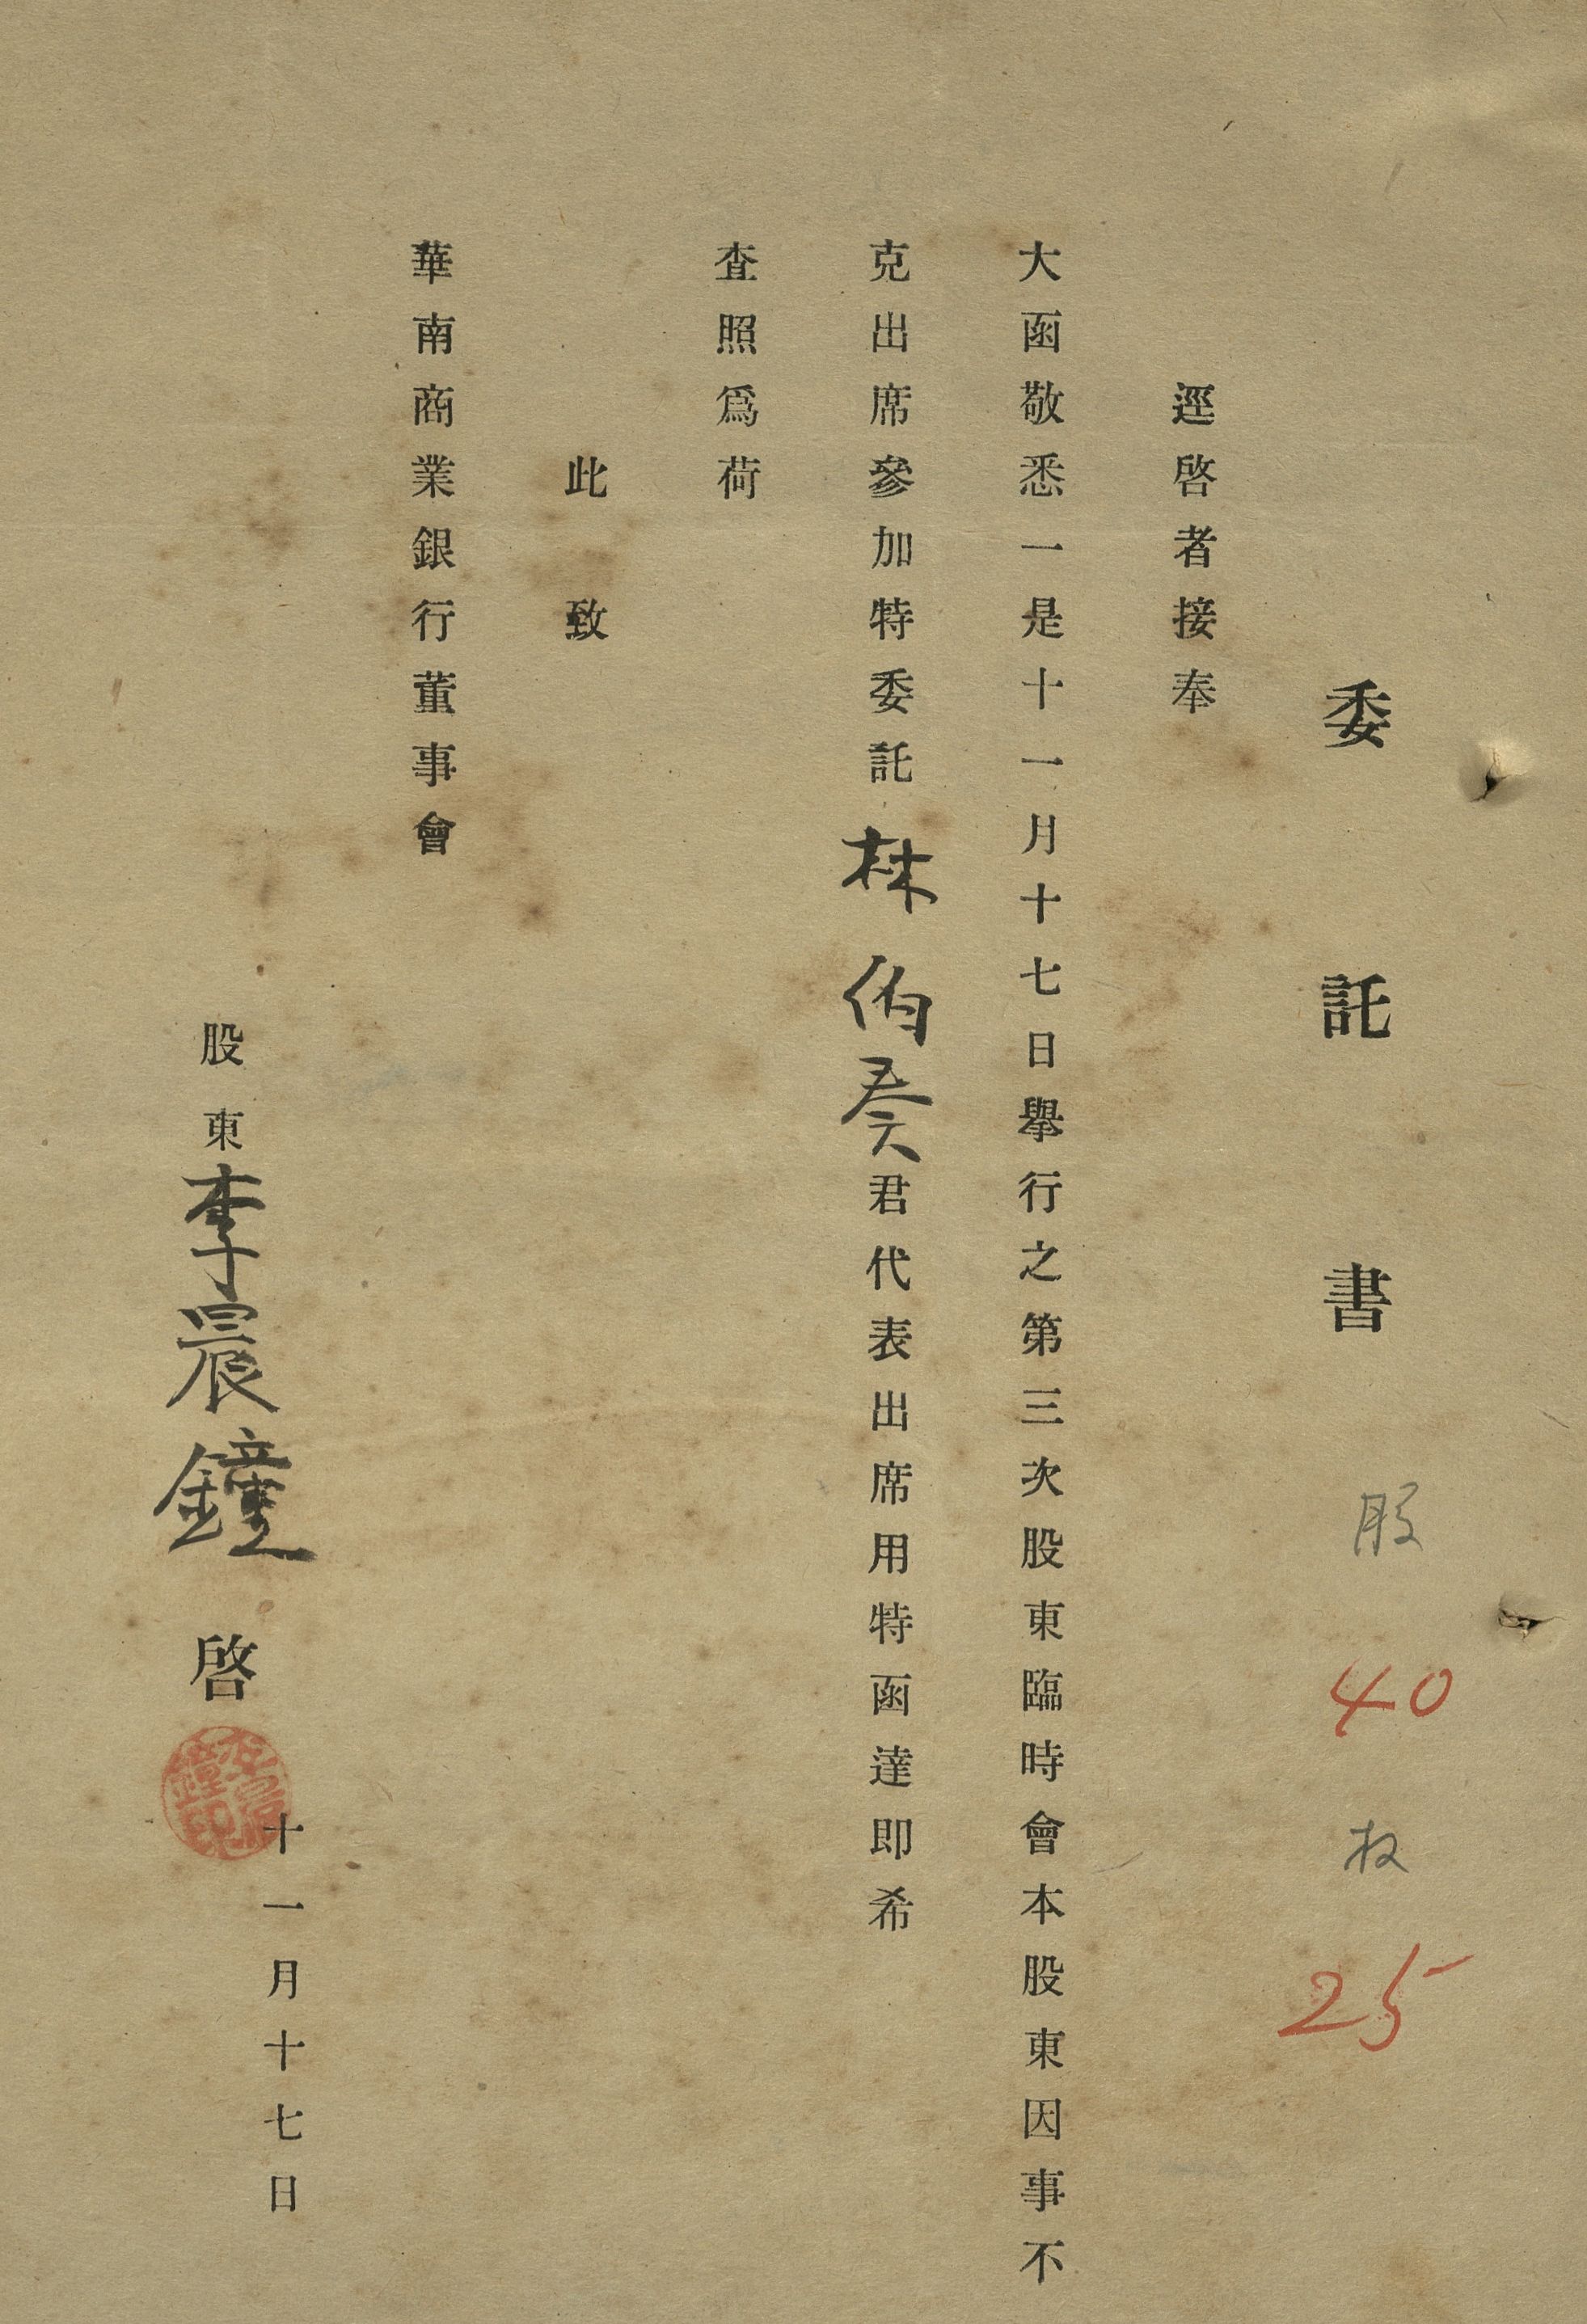 委託書 股 40 权 25
逕啓者接奉
大函敬悉一是十一月十七日舉行之第三次股東臨時會本股東因事不
克出席參加特委託林伯奏君代表出席用特函達即希
查照爲荷
此致
華南商業銀行董事會
十一月十七日
股東李晨鐘啓